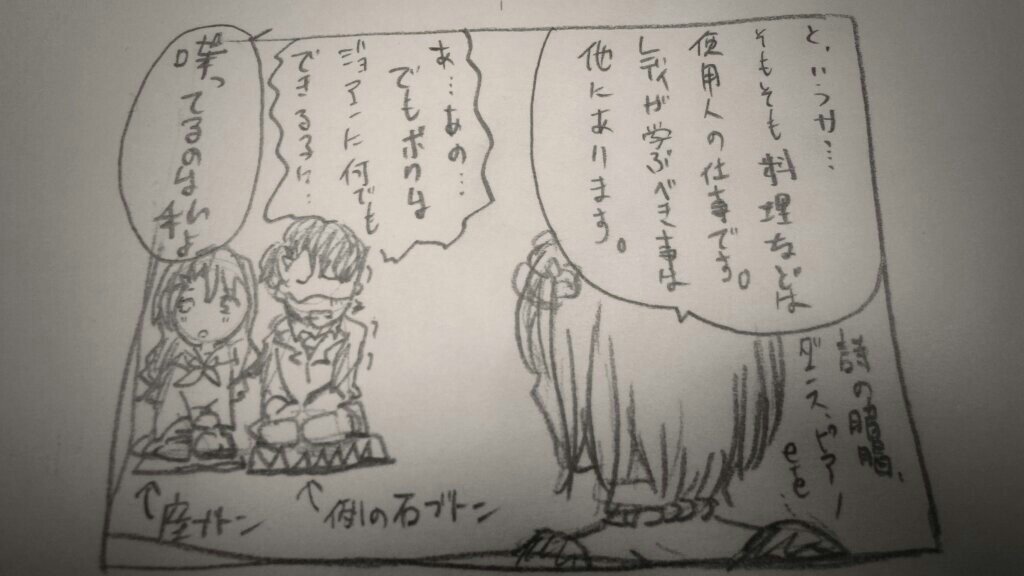 と、いうか…
そもそも料理などは
使用人の仕事です。
レディが学ぶべき事は
他にあります。
詩の朗読、
ダンス、ピアノ
etc.
あ…あの…
でもボクは
ジョアンに何でも
できるように…
黙ってるのないよ
↑
例の石ブトン
↑
座ブトン